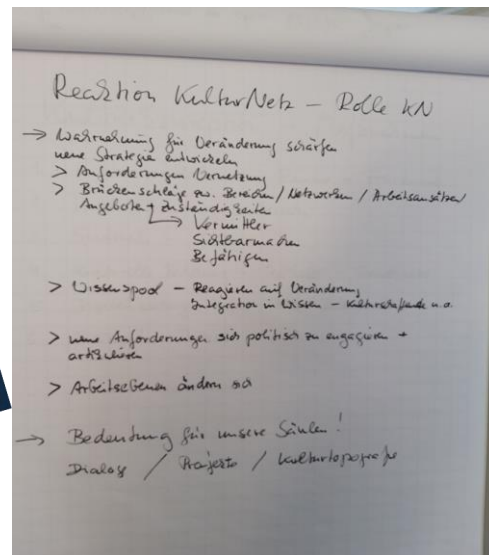 Reaktion KulturNetz – Rolle KN
→ Wahrnehmung für Veränderung schärfen
neue Strategie entwickeln
> Anforderungen Vernetzung
> Brückenschläge zw. Bereichen / Netzwerken / Arbeitsansätzen
Angeboten + Zuständigkeiten
Vermittler
Sichtbarmachen
Befähigen
> Wissenspool – Reagieren auf Veränderung
Integration in Wissen – Kulturschaffende u.a.
> neue Anforderungen sich politisch zu engagieren +
artikulieren
> Arbeitsebenen ändern sich
→ Bedeutung für unsere Säulen!
Dialog / Projekte / Kulturtopografie